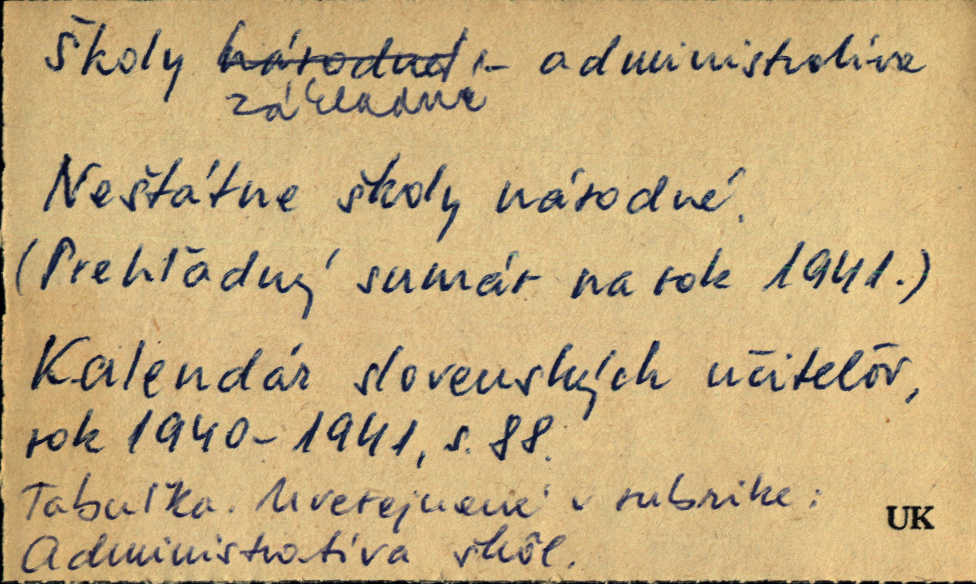 Školy národné - administratíva
základné
Neštátne školy národné.
(Prehľadný sumár na rok 1941.)
Kalendár slovenských učiteľov,
rok 1940-1941, s. 88.
Tabuľka. Uverejnené v rubrike:
Administratíva škôl.
UK